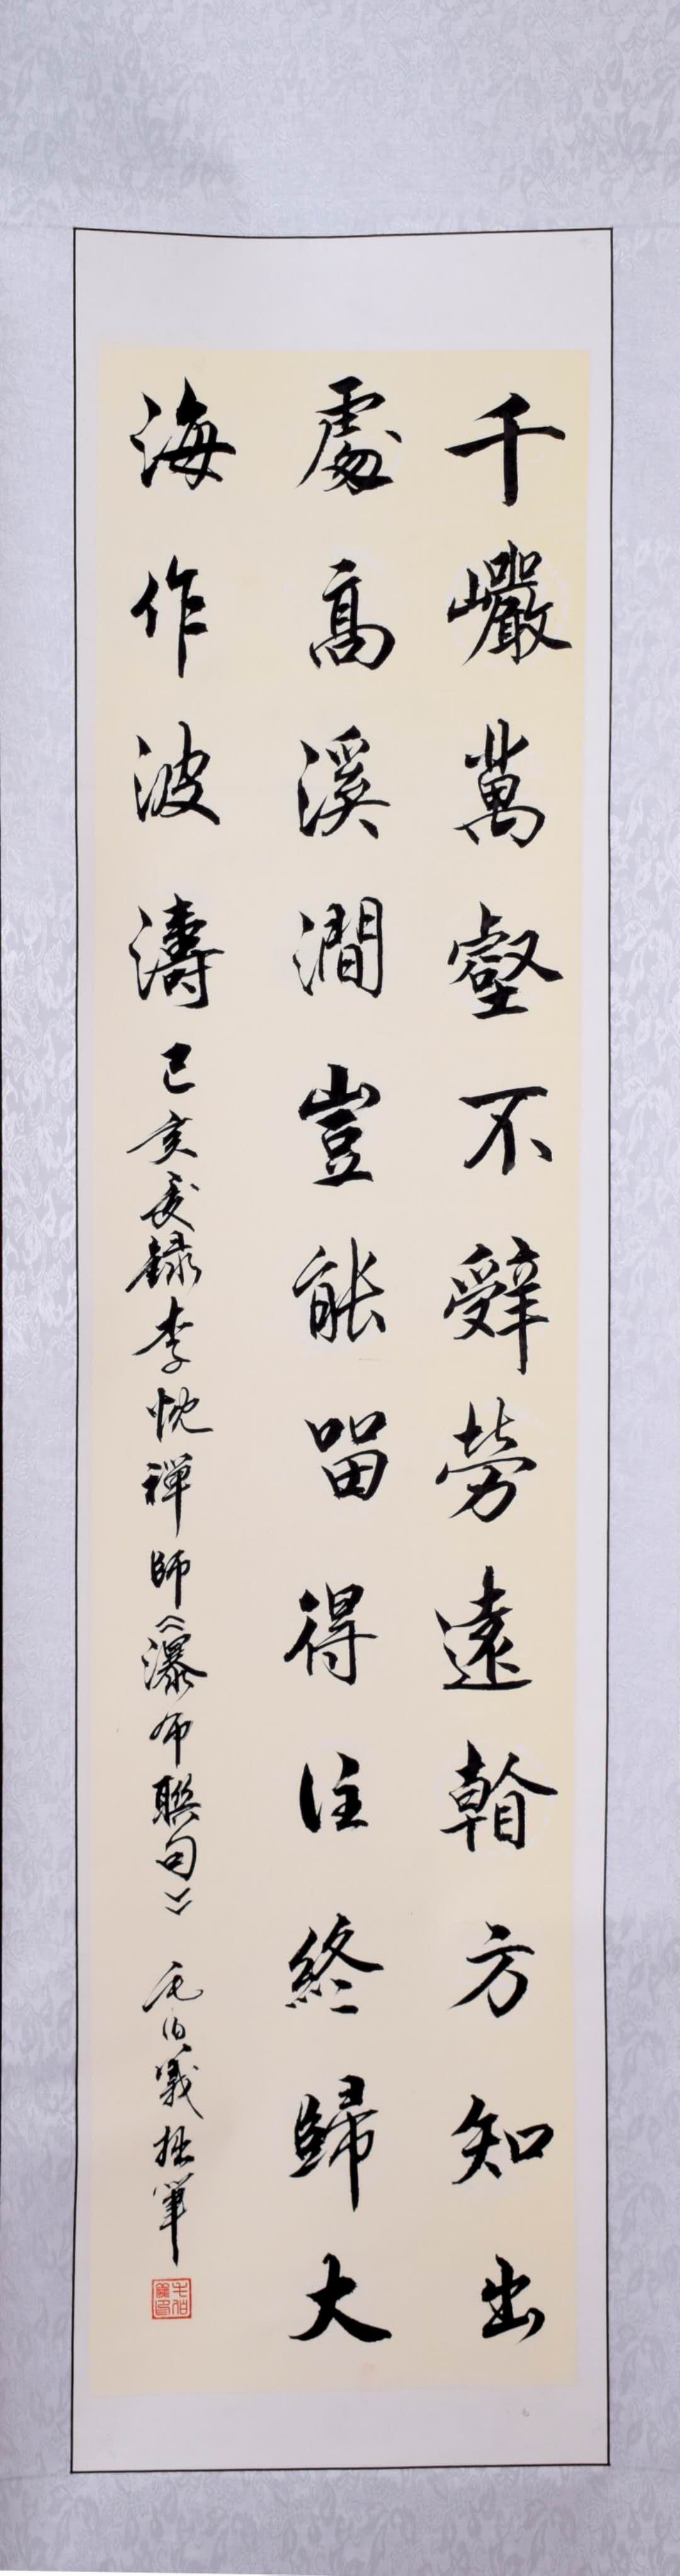 千巖萬壑不辭勞遠𮧯方知出
處高溪澗豈能留得住終歸大
海作波濤
己亥夏録李忱禪師《瀑布聯句》 毛伯義拙筆